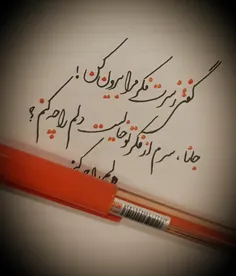 گفتی ز سرت فکر مرا بیرون کن !
جانا ، سرم از فکر تو خالیست دلم را چه کنم ؟
دلم را چه کنم